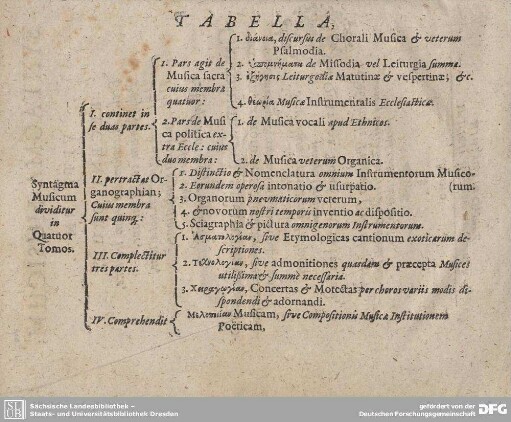 TABELLA,
1. διάνοια, discursus de Chorali Musica & veterum
Psalmodia.
1. Pars agit de
Musica sacra
cuius membra
quatuor:
2. ὑπομνήματα de Missodia vel Leiturgia summa.
3. ἐξήγησις Leiturgodiæ Matutinæ & vespertinæ; &c.
4. θεωρία Musicæ Instrumentalis Ecclesiasticæ.
I. continet in
se duas partes.
2. Pars de Musi
ca politica ex-
tra Eccle: cuius
duo membra:
1. de Musica vocali apud Ethnicos.
2. de Musica veterum Organica.
Syntagma
Musicum
dividitur
in
Quatuor
Tomos.
II. pertractat Or-
ganographian;
Cuius membra
sunt quinq;:
1. Distinctio & Nomenclatura omnium Instrumentorum Musico-
(rum.
2. Eorundem operosa intonatio & usurpatio.
3. Organorum pnevmaticorum veterum,
4. & novorum nostri temporis inventio ac dispositio.
5. Sciagraphia & pictura omnigenorum Instrumentorum.
III. Complectitur
tres partes.
1. Ἀσματολογίαν, sive Etymologicas cantionum exoticarum de-
scriptiones.
2. Τεχνολογίαν, sive admonitiones quasdam & præcepta Musices
utilissima & summè necessaria.
3. Χειραγωγίαν, Concertas & Motectas per choros variis modis di-
spondendi & adornandi.
IV. Comprehendit
Μελοποιίαν Musicam, sive Compositionis Musicæ Institutionem
Poëticam,
SLUB
Sächsische Landesbibliothek –
Staats- und Universitätsbibliothek Dresden
gefördert von der
Deutschen Forschungsgemeinschaft
DFG